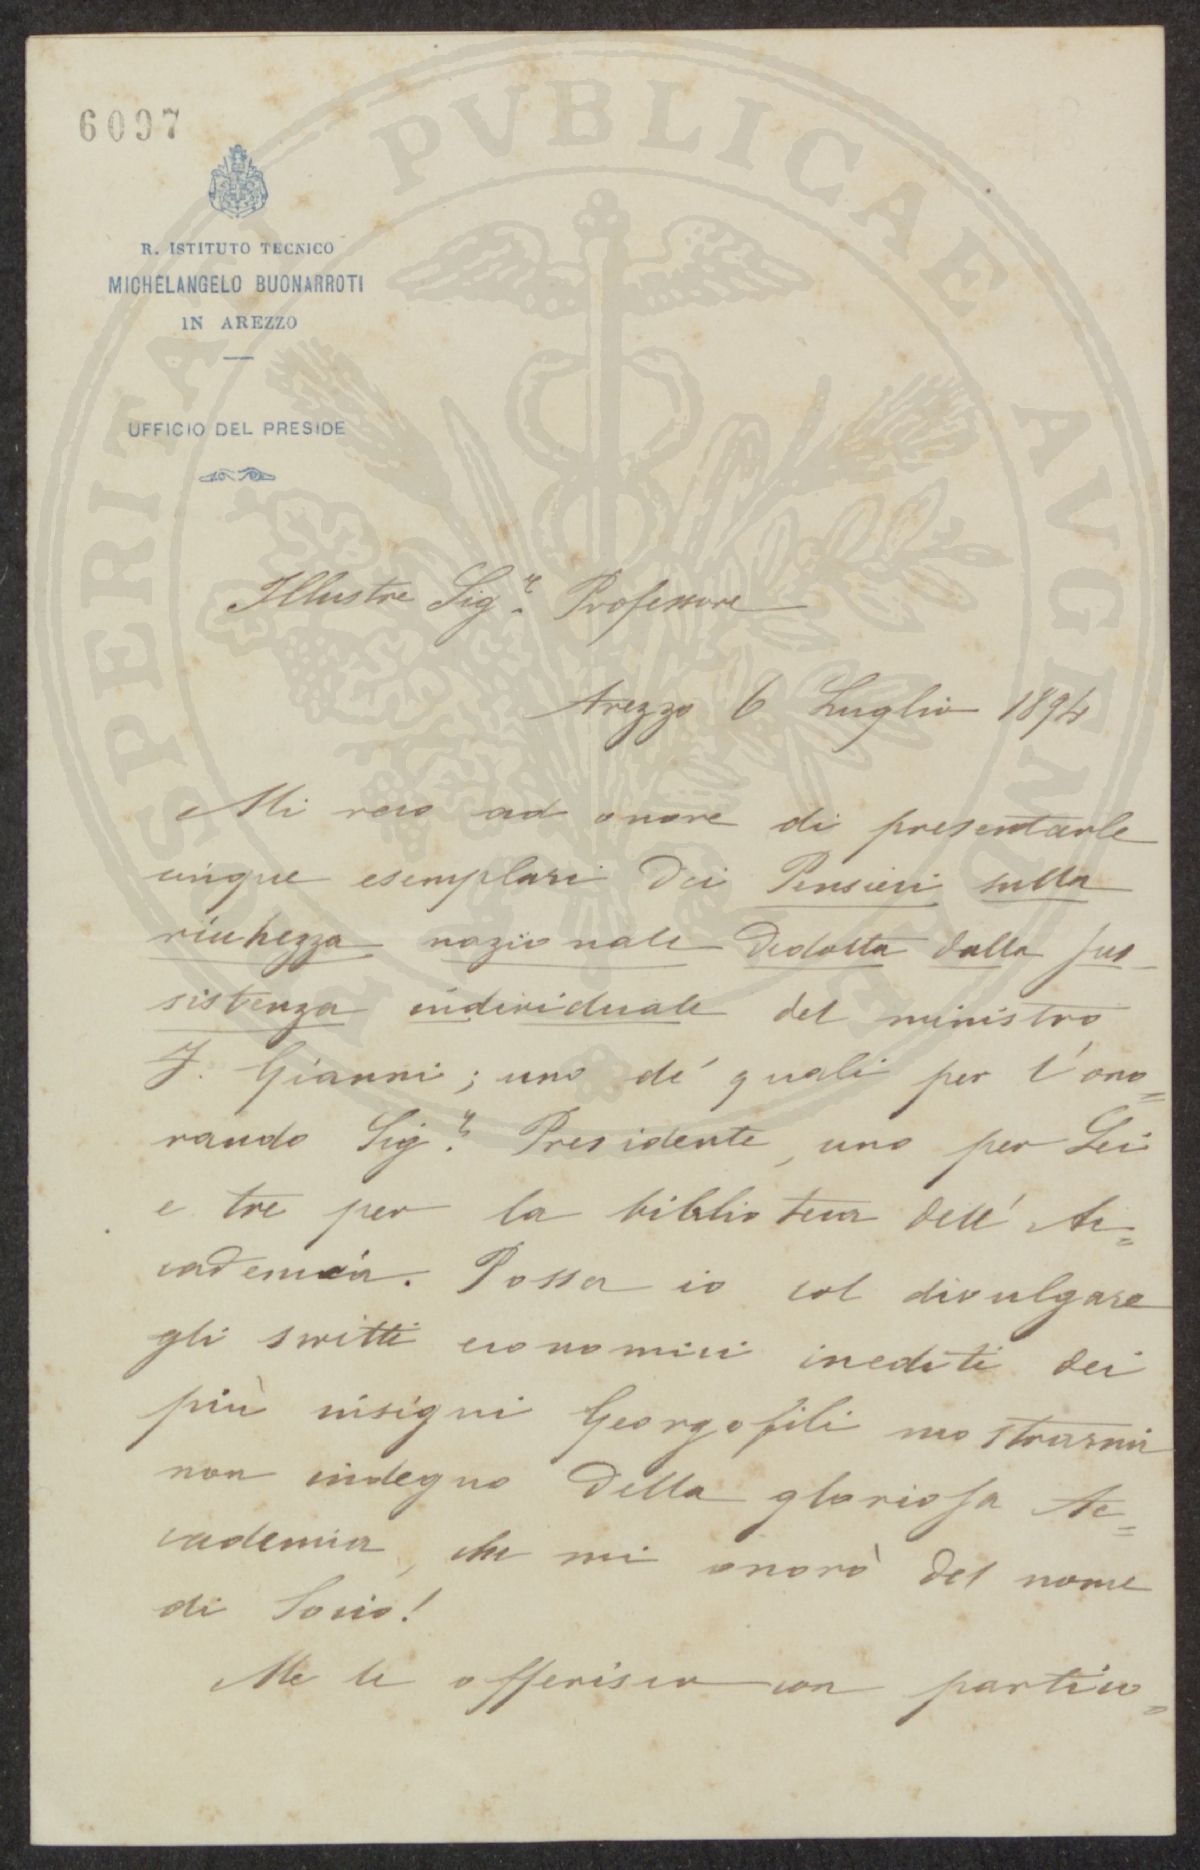 6097
R. ISTITUTO TECNICO
MICHELANGELO BUONARROTI
IN AREZZO
UFFICIO DEL PRESIDE
Illustre Sigr. Professore
Arezzo 6 Luglio 1894
Mi reco ad onore di presentarle
cinque esemplari dei Pensieri sulla
ricchezza nazionale dedotta dalla sus-
sistenza individuale del ministro
F. Gianni; uno de' quali per l'ono=
rando Sigr. Presidente, uno per Lei
e tre per la biblioteca dell' Ac=
cademia. Possa io col divulgare
gli scritti economici inediti dei
più insigni Georgofili mostrarmi
non indegno della gloriosa Ac=
cademia, che mi onorò del nome
di Socio!
Me le offerisco con partico=
PROSPERITATI PVBLICAE AVGENDAE